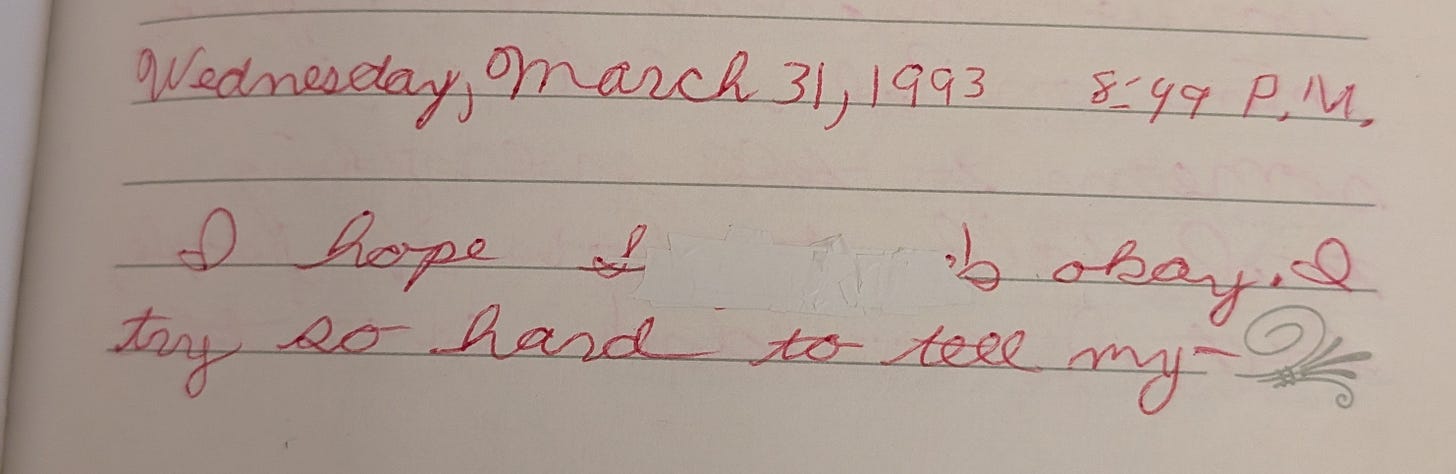 Wednesday, March 31, 1993 8:49 P.M.
I hope okay. I
try so hard to tell my-